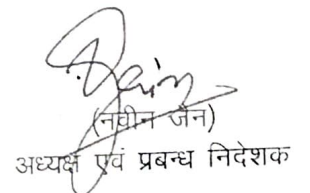 (नवीन जैन)
अध्यक्ष एवं प्रबन्ध निदेशक